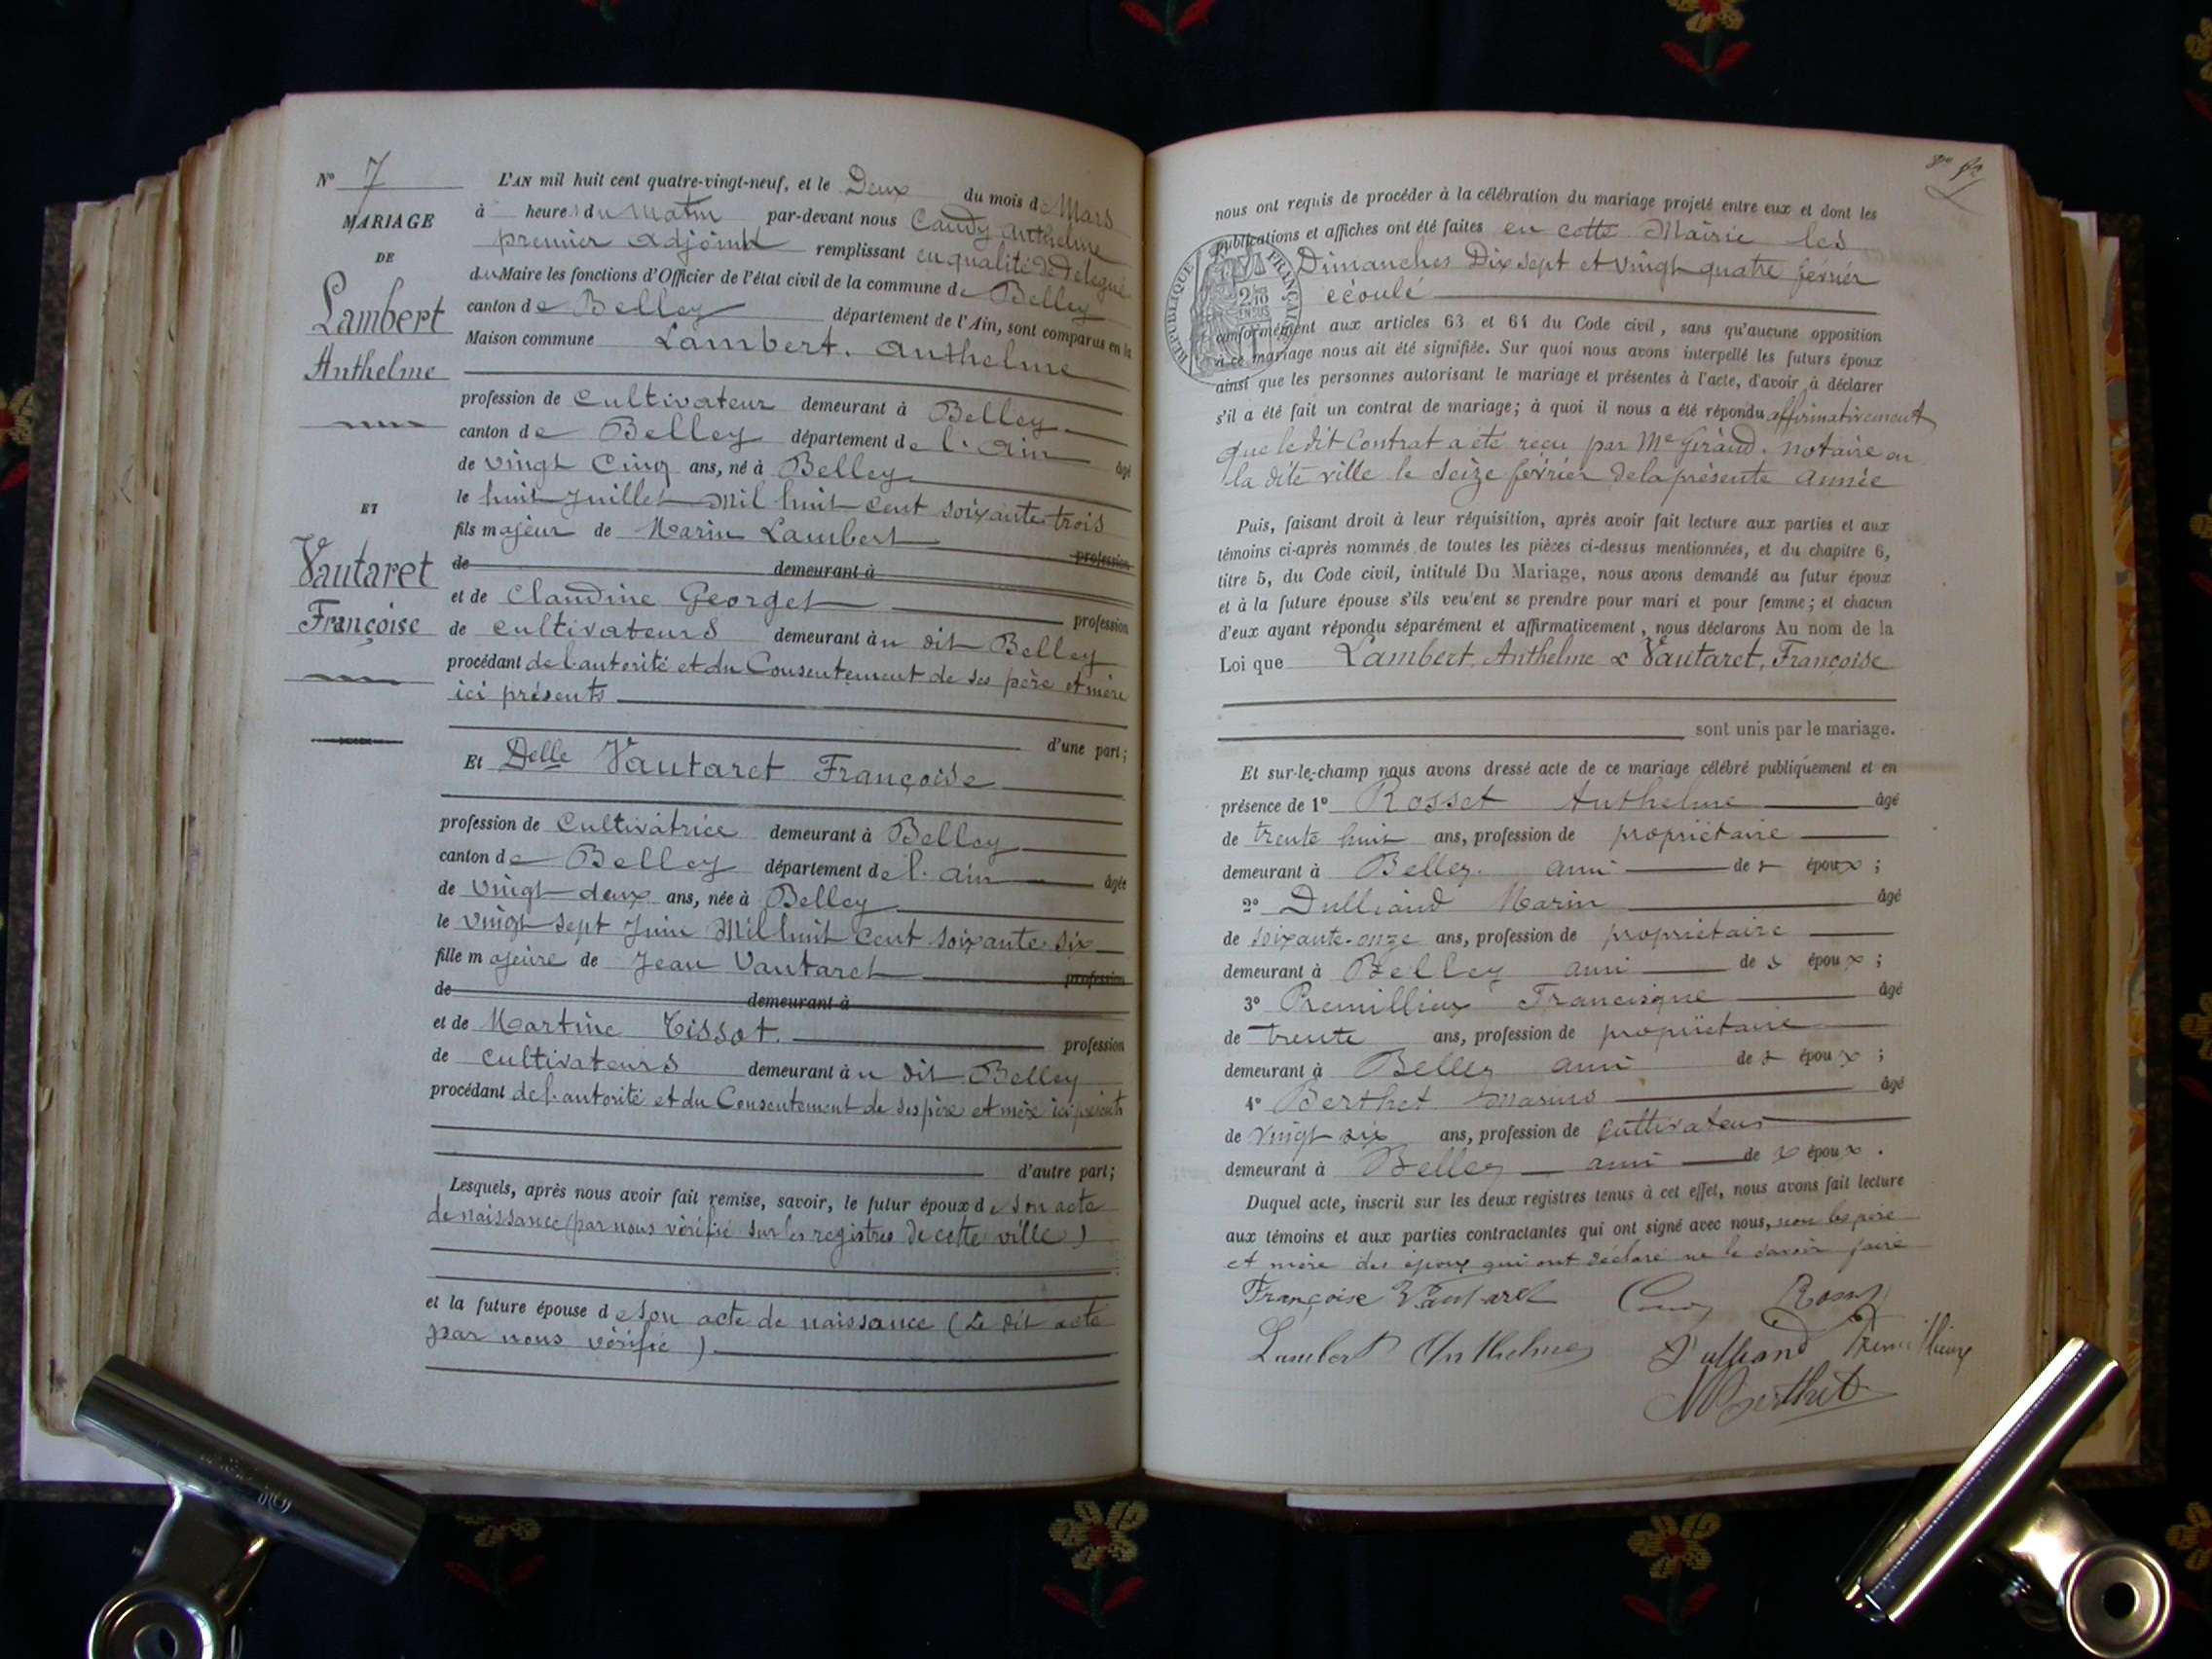 N° 7
MARIAGE
DE
Lambert
Anthelme
ET
Vautaret
Françoise
L'AN mil huit cent quatre-vingt-neuf, et le Deux du mois de Mars
à heures du Matin par-devant nous Caudy Anthelme
premier adjoint remplissant en qualité de délégué
du Maire les fonctions d'Officier de l'état civil de la commune de Belley
canton de Belley département de l'Ain, sont comparus en la
Maison commune Lambert. Anthelme
profession de Cultivateur demeurant à Belley
canton de Belley département de l'Ain âgé
de vingt Cinq ans, né à Belley
le huit Juillet Mil huit Cent soixante trois
fils majeur de Marin Lambert profession
de demeurant à
et de Claudine Georget profession
de cultivateurs demeurant au dit Belley
procédant de l'autorité et du Consentement de ses père et mère
ici présents
d'une part;
Et Delle Vautaret Françoise
profession de Cultivatrice demeurant à Belley
canton de Belley département de l'ain âgée
de vingt deux ans, née à Belley
le vingt sept Juin Mil huit Cent soixante six
fille majeure de Jean Vautaret profession
de demeurant à
et de Martine Tissot. profession
de cultivateurs demeurant au dit Belley
procédant de l'autorité et du Consentement de ses père et mère ici présents
d'autre part;
Lesquels, après nous avoir fait remise, savoir, le futur époux de son acte
de naissance (par nous vérifié sur les registres de cette ville)
et la future épouse de son acte de naissance (Le dit acte
par nous vérifié)
nous ont requis de procéder à la célébration du mariage projeté entre eux et dont les
publications et affiches ont été faites en cette Mairie les
Dimanches Dix sept et vingt quatre février
écoulé
RÉPUBLIQUE FRANÇAISE
conformément aux articles 63 et 64 du Code civil, sans qu'aucune opposition
à ce mariage nous ait été signifiée. Sur quoi nous avons interpellé les futurs époux
ainsi que les personnes autorisant le mariage et présentes à l'acte, d'avoir à déclarer
s'il a été fait un contrat de mariage; à quoi il nous a été répondu affirmativement
que le dit Contrat a été reçu par Me Giraud. notaire en
la dite ville le Seize février de la présente Année
Puis, faisant droit à leur réquisition, après avoir fait lecture aux parties et aux
témoins ci-après nommés de toutes les pièces ci-dessus mentionnées, et du chapitre 6,
titre 5, du Code civil, intitulé Du Mariage, nous avons demandé au futur époux
et à la future épouse s'ils veulent se prendre pour mari et pour femme; et chacun
d'eux ayant répondu séparément et affirmativement, nous déclarons Au nom de la
Loi que Lambert, Anthelme & Vautaret, Françoise
sont unis par le mariage.
Et sur-le-champ nous avons dressé acte de ce mariage célébré publiquement et en
présence de 1° Rosset Anthelme âgé
de trente huit ans, profession de propriétaire
demeurant à Belley. ami des époux;
2° Dulliand Marin âgé
de soixante-onze ans, profession de propriétaire
demeurant à Belley ami des époux;
3° Premillieu Francisque âgé
de trente ans, profession de propriétaire
demeurant à Belley ami des époux;
4° Berthet Marius âgé
de vingt six ans, profession de cultivateur
demeurant à Belley ami des époux.
Duquel acte, inscrit sur les deux registres tenus à cet effet, nous avons fait lecture
aux témoins et aux parties contractantes qui ont signé avec nous, non les père
et mère des époux qui ont déclaré ne le savoir faire
Françoise Vautaret Caudy Rosset
Lambert Anthelme Dulliand Premillieux
M Berthet